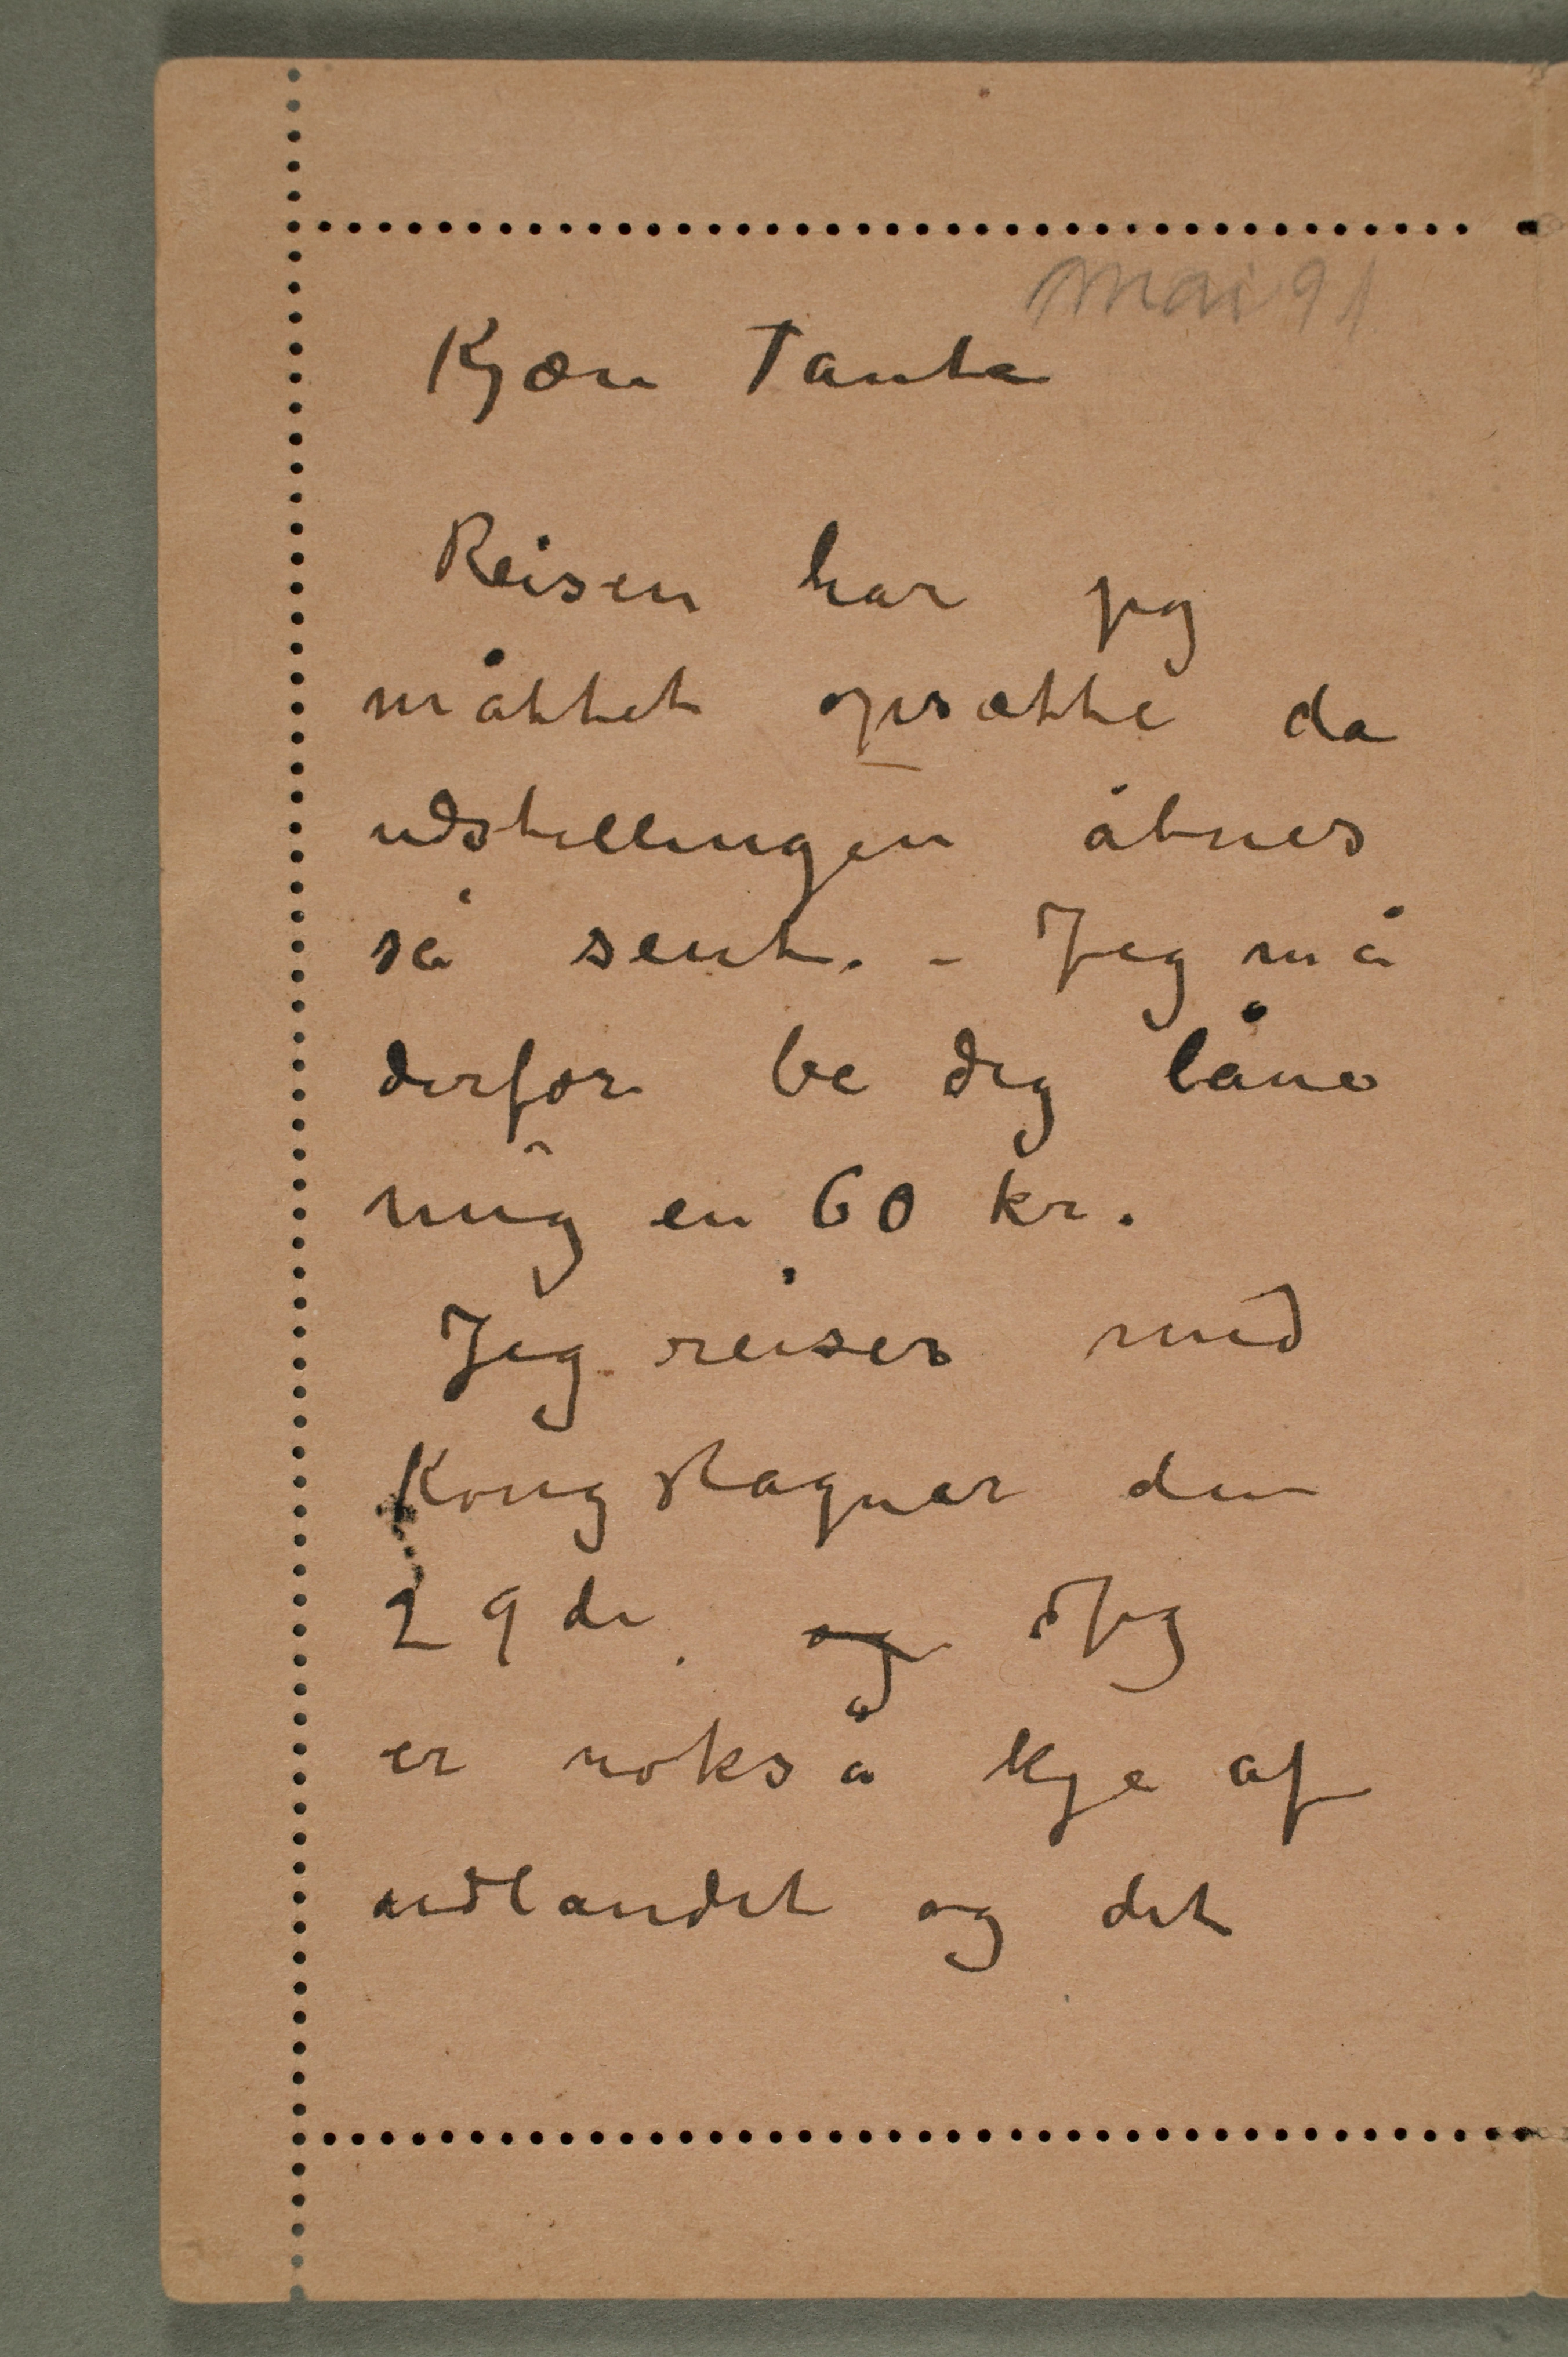 mai 91
Kjære Tante
Reisen har jeg
måttet opsætte da
udstillingen åbnes
så sent. – Jeg må
derfor be deg låne
mig en 60 kr.
Jeg reiser med
Kong Ragnar den
29de. og Jeg
er nokså kje af
udlandet og det